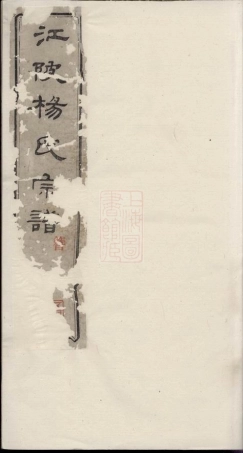 江陂楊氏宗譜
上海圖書館藏